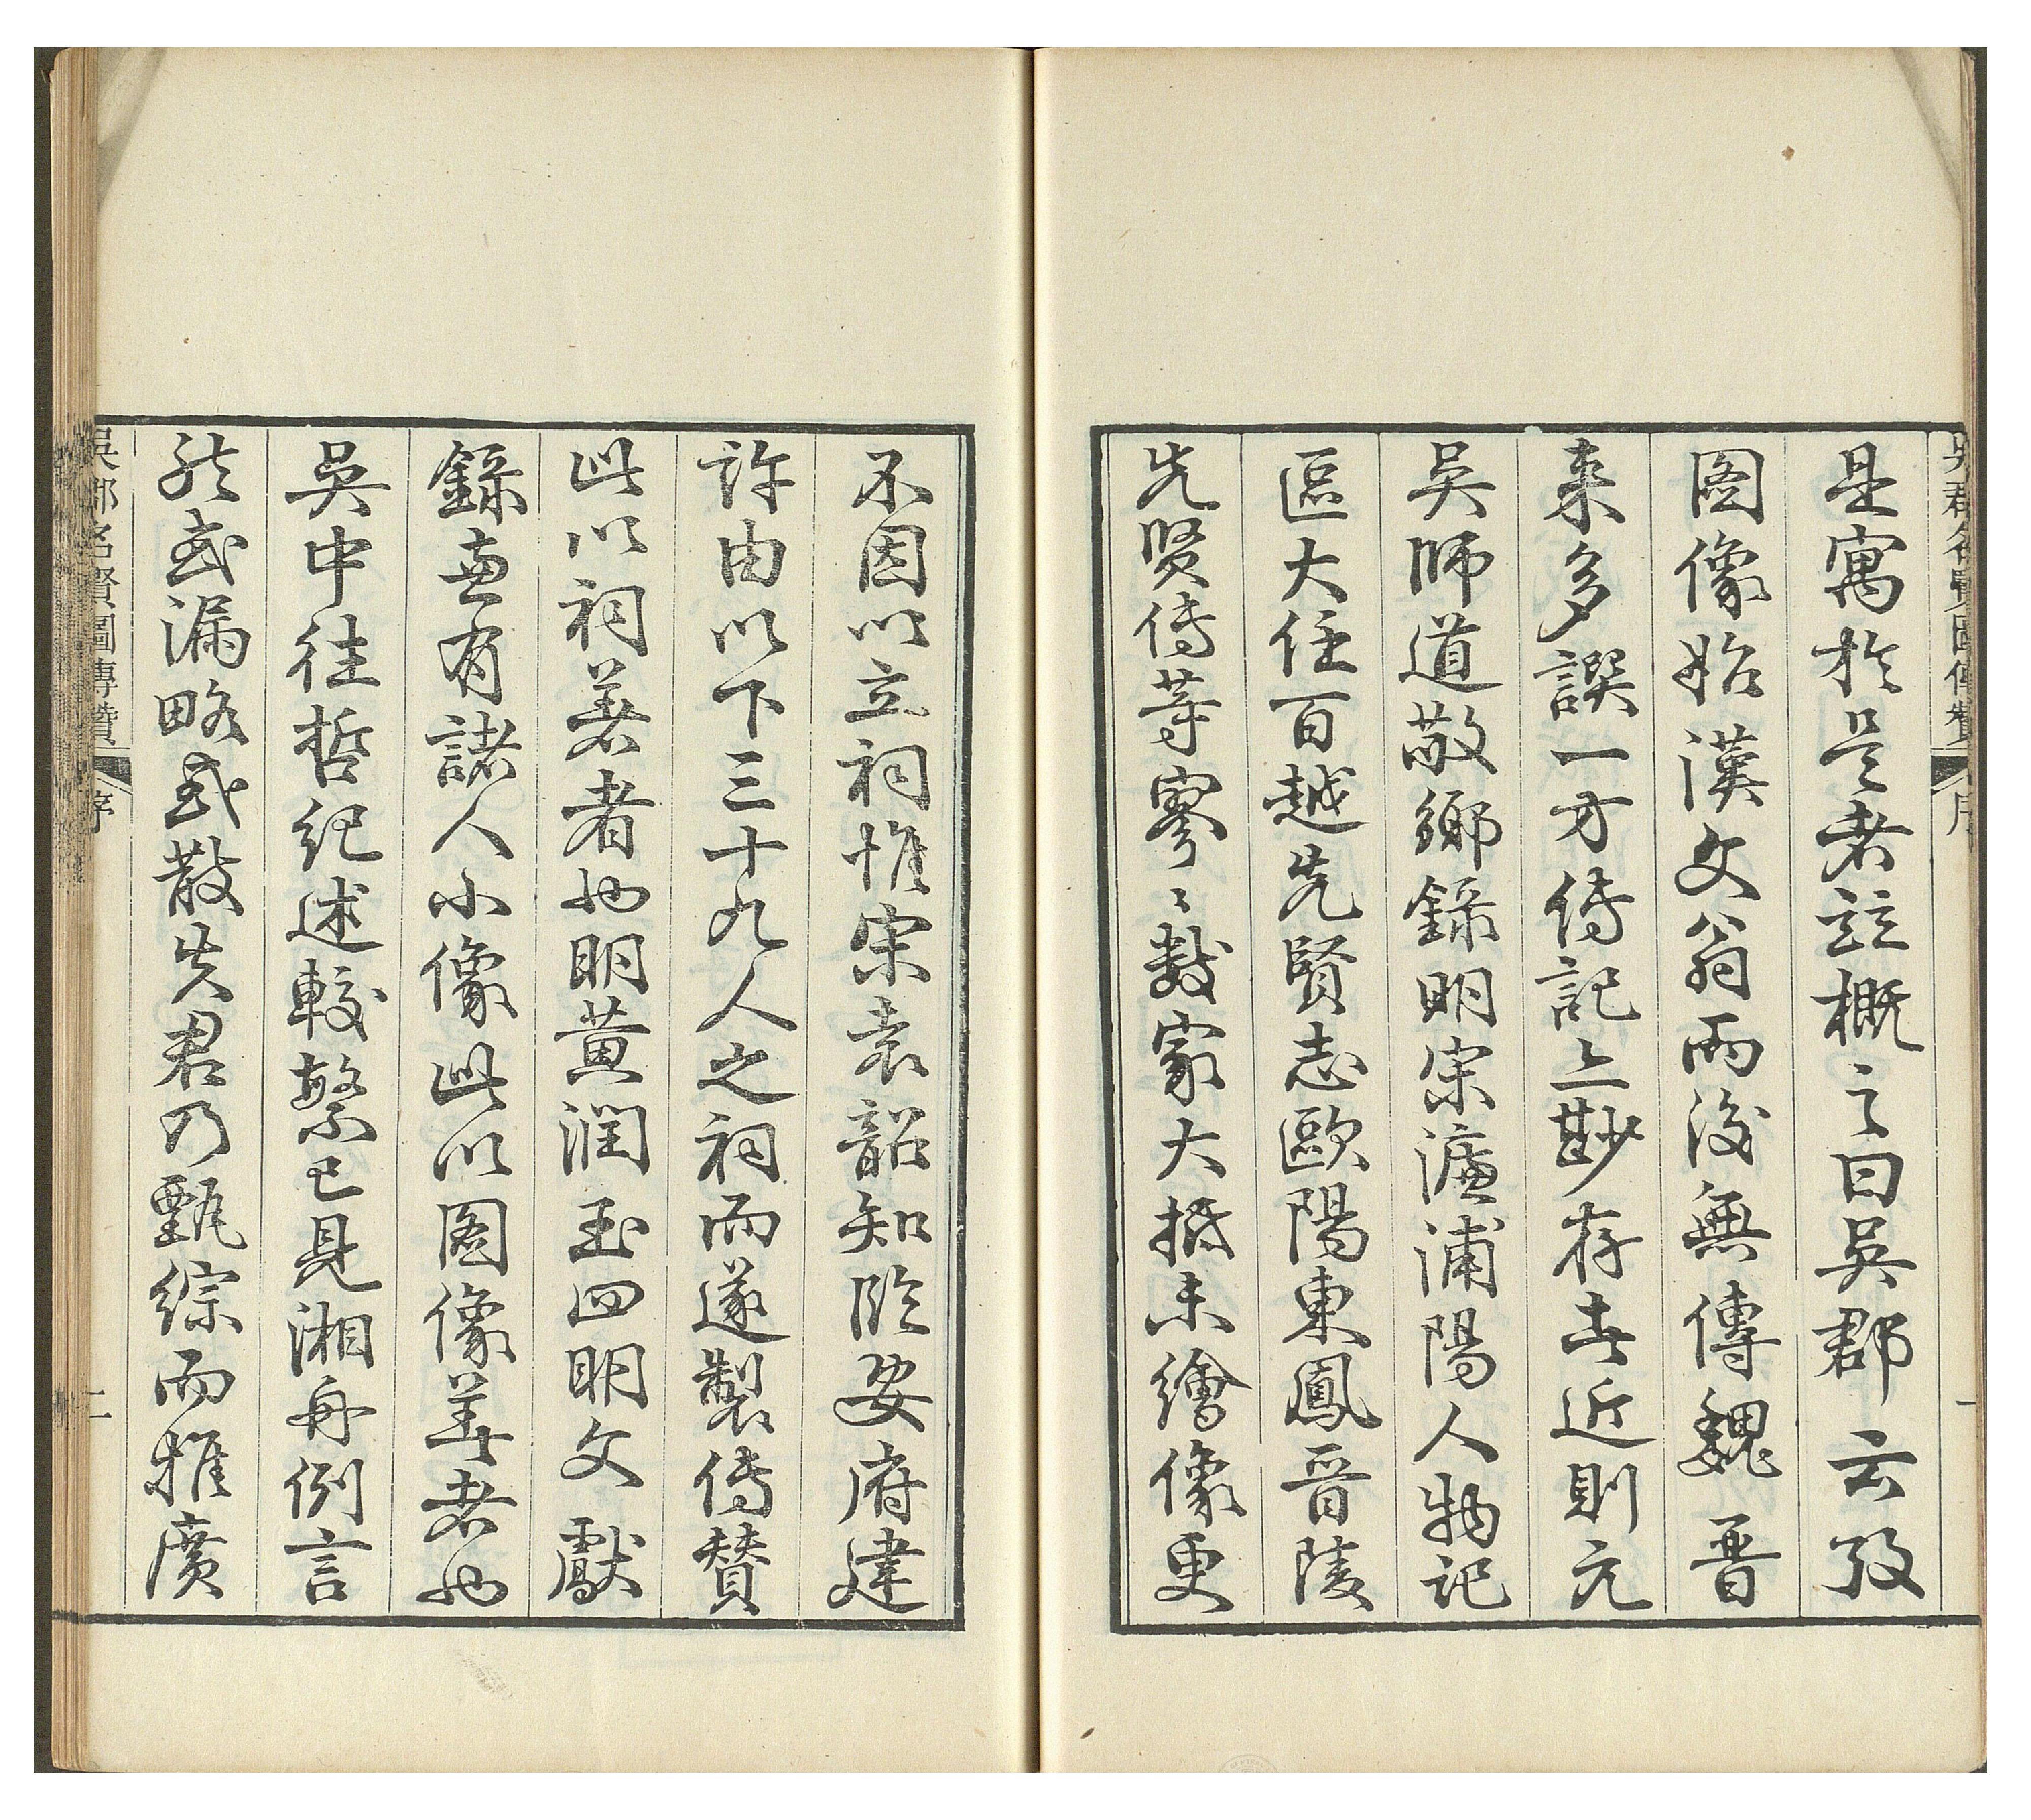 吳郡名賢圖傳贊 序 一
是寓於是者竝概之曰吳郡云攷
圖像始漢文翁而後無傳魏晉
来多譔一方傳記上尠存者近則元
吳師道敬鄉錄明宋濂浦陽人物記
區大任百越先賢志歐陽東鳳晉陵
先賢傳等寥〻數家大抵未繪像更
不因以立祠惟宋袁韶知臨安府建
許由以下三十九人之祠而遂製傳贊
此以祠著者也明黃潤玉四明文獻
錄兼有諸人小像此以圖像著者也
吳中往哲紀述較繁已見湘舟例言
然或漏略或散失君乃甄綜而推廣
吳郡名賢圖傳贊 序 二